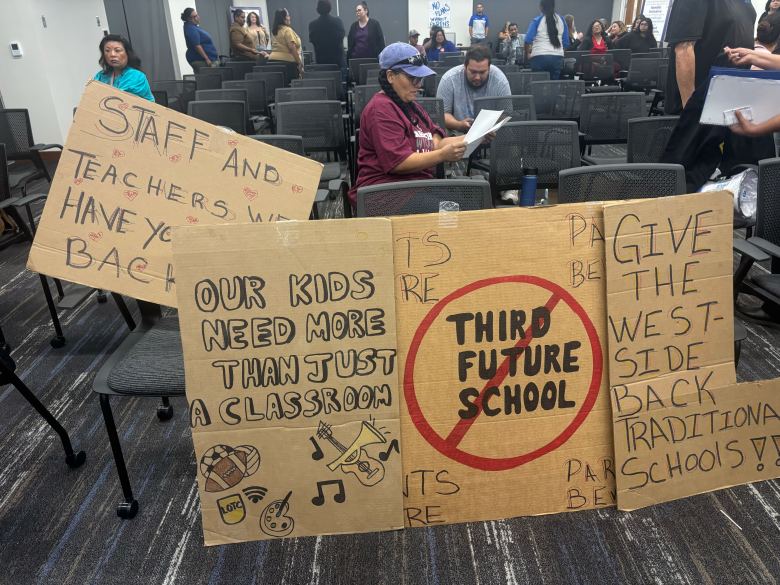 NO
FUNDS
WITHOUT
STAFF AND
TEACHERS WE
HAVE YO
BACK
OUR KIDS
NEED MORE
THAN JUST
A CLASSROOM
LOTC
TS
RE
PA
BE
THIRD
FUTURE
SCHOOL
NTS
RE
PAR
BEW
GIVE
THE
WEST-
SIDE
BACK
TRADITIONA
SCHOOLS!!